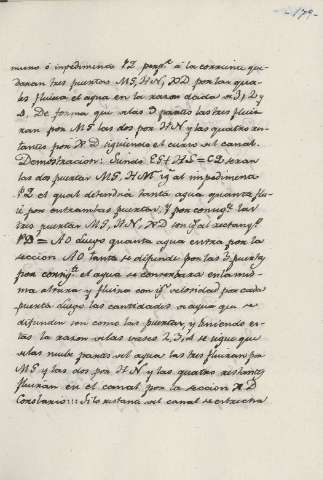 179.
muro ó impedimento P2 perp.r á la corriente que-
daran tres puertas MS, HN, XD por las qua-
les fluira el agua en la razon dada de 3, 2 y
4. De forma que de las 9 partes las tres flui-
ran por MS las dos por HN y las quatro res-
tantes por XD siguiendo el curso del canal.
Demostracion: Siendo ES+HS=C2 seran
las dos puertas MS, HN ig.s al impedimento
P2 el qual detendria tanta agua quanta flu-
ie por entrambas puertas, y por consig.te las
tres puertas MS, HN, XD son ig.s al rectang.o
PD = AO luego quanta agua entra por la
seccion AO tanta se difunde por las 3 puertas
por consig.te el agua se conservara en la mis-
ma altura y fluira con ig.l velocidad por cada
puerta luego las cantidades de agua que se
difunden son como las puertas, y teniendo es-
tas la razon de las vases 2, 3, 4 se sigue que
de las nube partes del agua las tres fluiran por
MS y las dos por HN y las quatro restantes
fluiran en el canal por la seccion XD
Corolario: Si lo restante del canal se estrecha